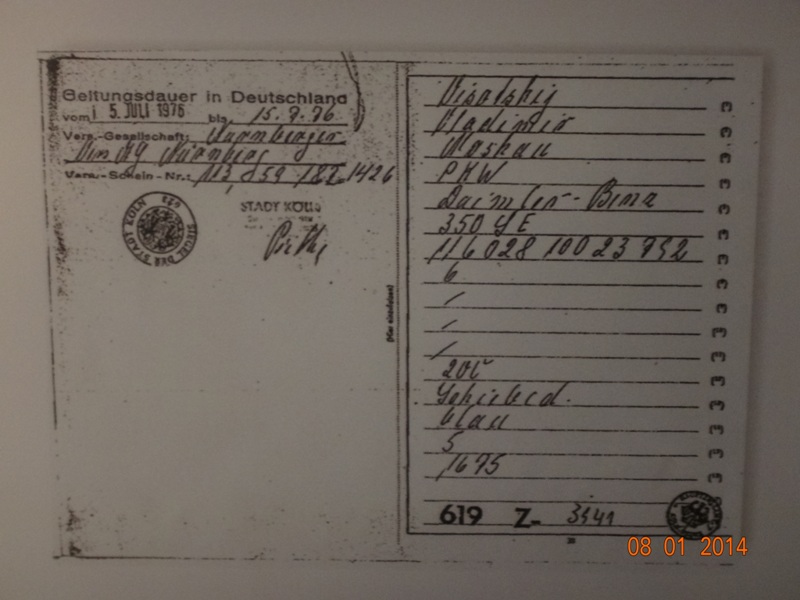 Geltungsdauer in Deutschland
vom 15. JULI 1976 bis 15.9.76
Vers.-Gesellschaft: Nürnberger
Vers AG Nürnberg
Vers.-Schein-Nr.:
SIEGEL DER STADT KÖLN
STADT KÖLN
(Hier einreißen)
Wladimir
Moskau
PKW
Daimler-Benz
350 SE
116028 10023792
6
/
/
/
/
Schiebed.
blau
5
1675
619 Z- 3441
08 01 2014